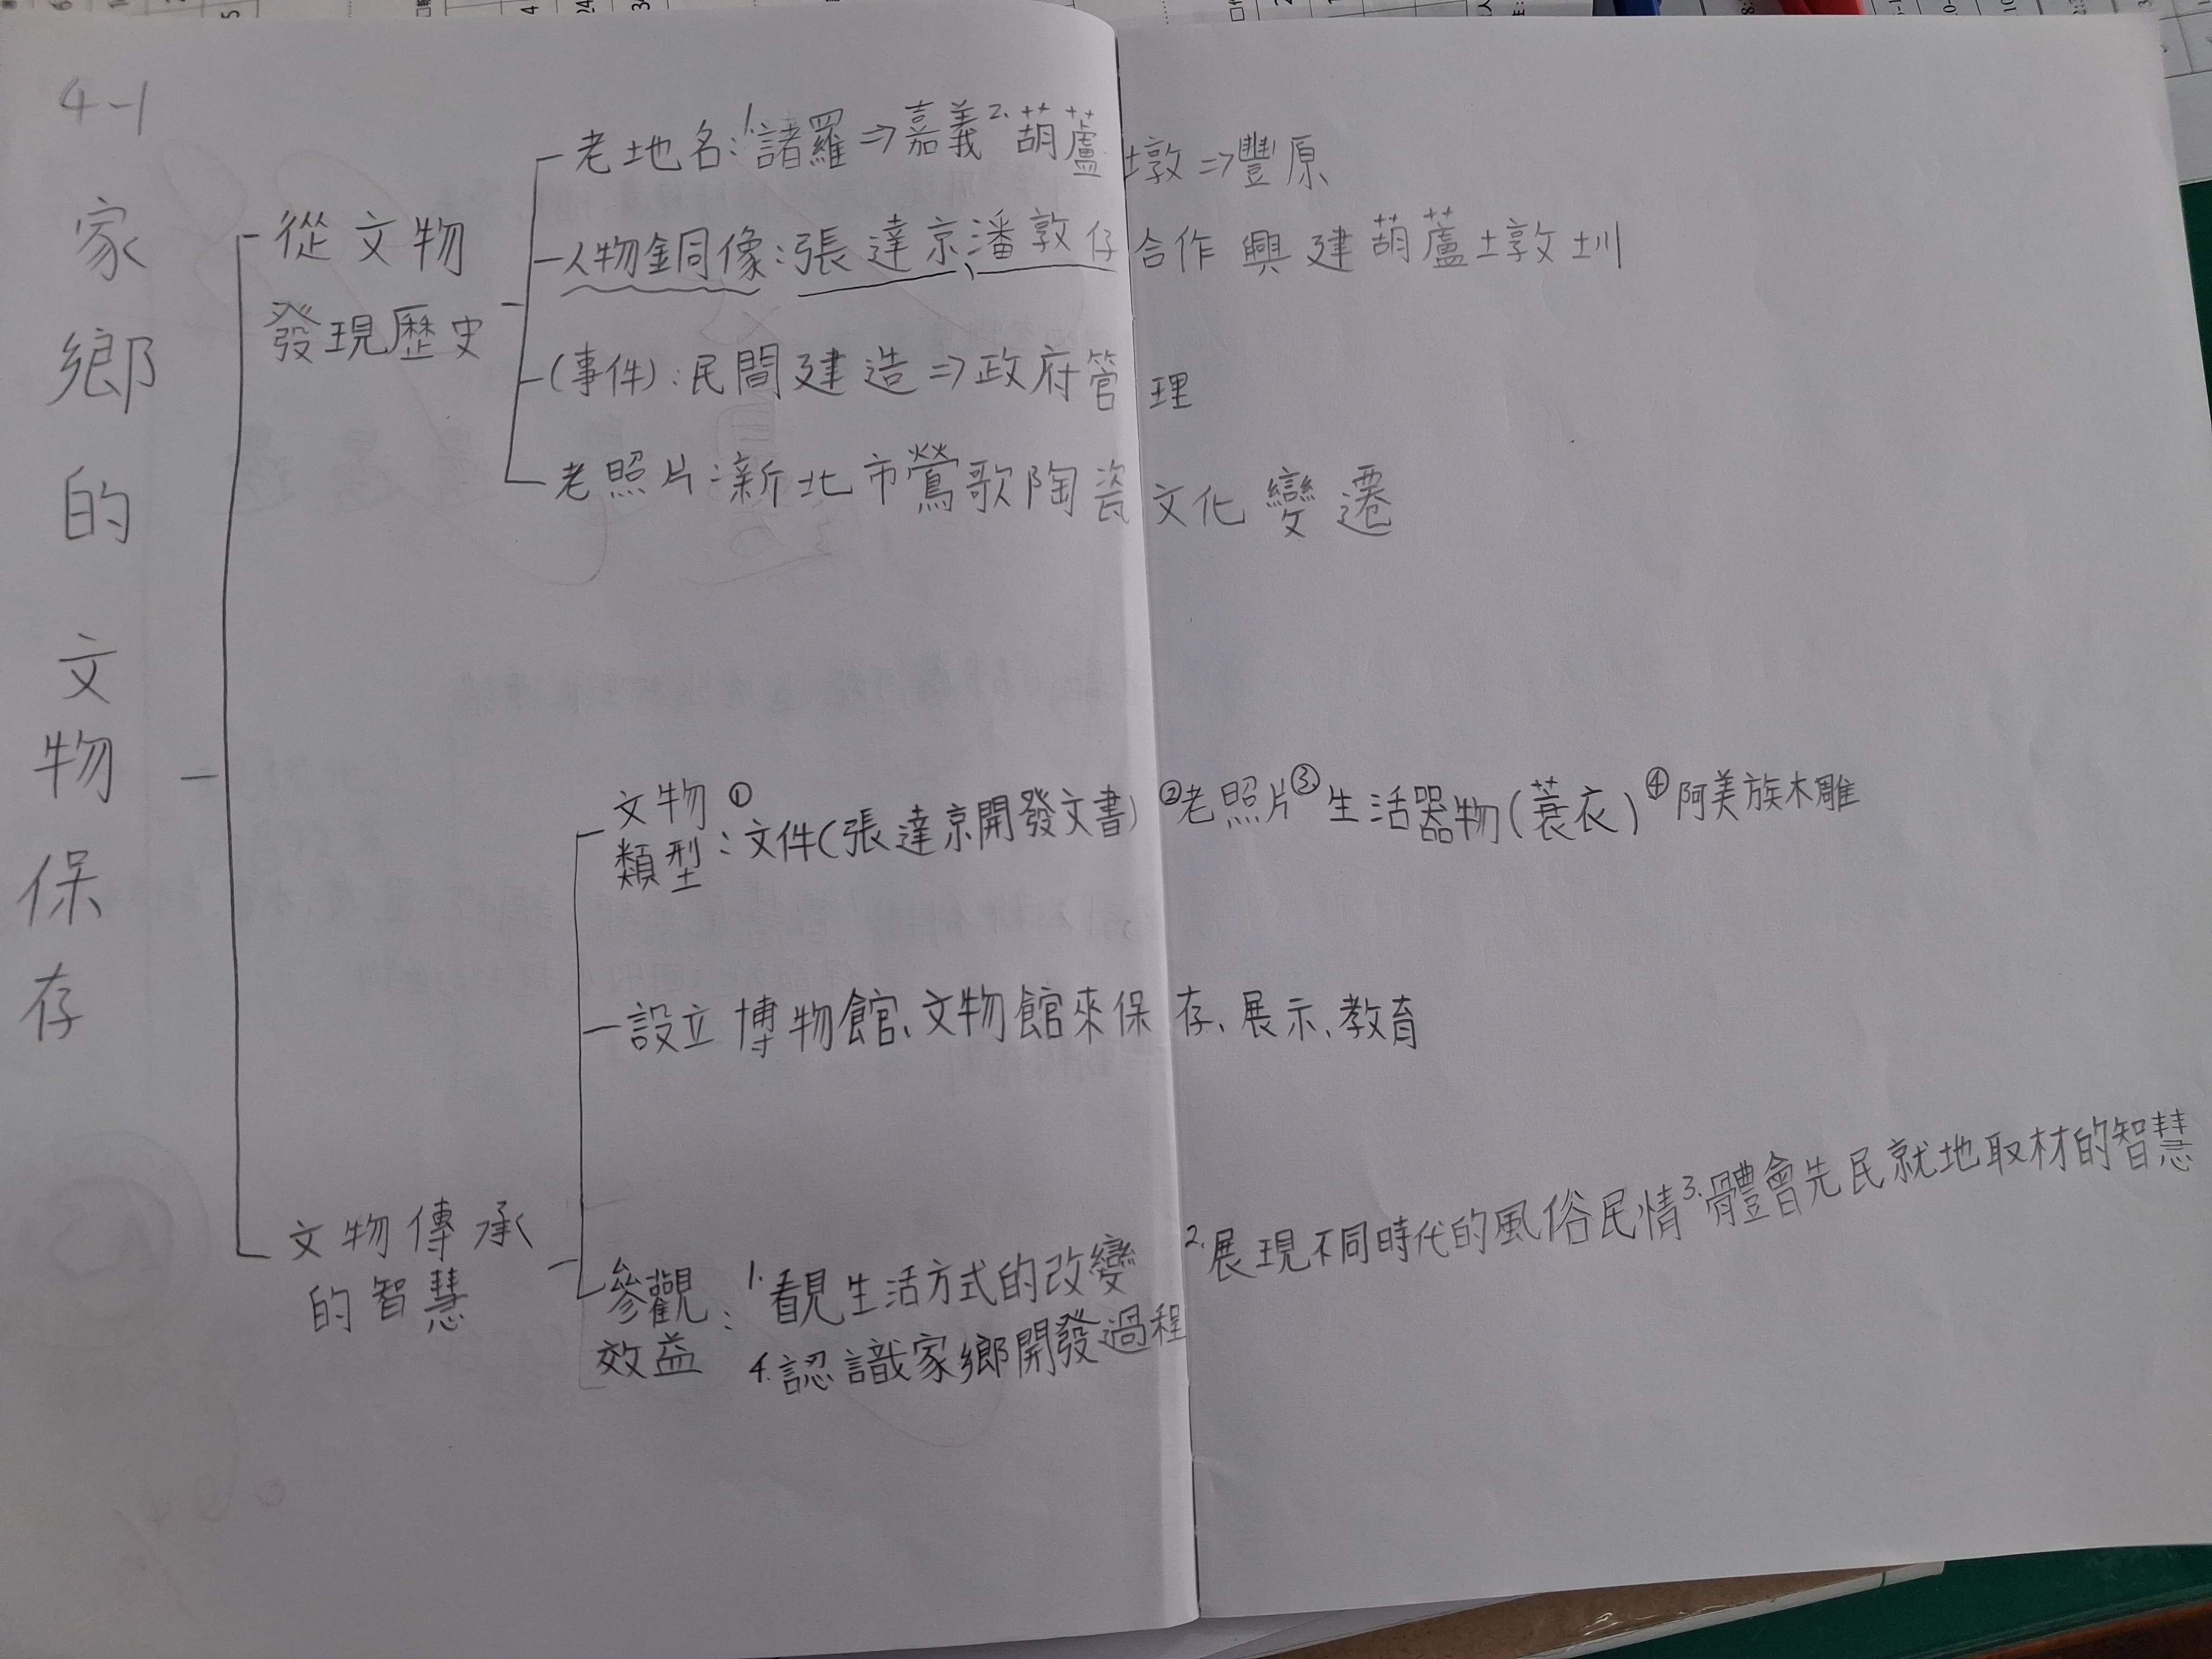 4-1
家鄉的文物保存
從文物
發現歷史
老地名：1.諸羅⇒嘉義 2.葫蘆墩⇒豐原
人物銅像：張達京、潘敦仔合作興建葫蘆墩圳
(事件)：民間建造⇒政府管理
老照片：新北市鶯歌陶瓷文化變遷
文物傳承
的智慧
文物
類型：①文件(張達京開發文書) ②老照片 ③生活器物(蓑衣) ④阿美族木雕
設立博物館、文物館來保存、展示、教育
參觀
效益：1.看見生活方式的改變 2.展現不同時代的風俗民情 3.體會先民就地取材的智慧
4.認識家鄉開發過程